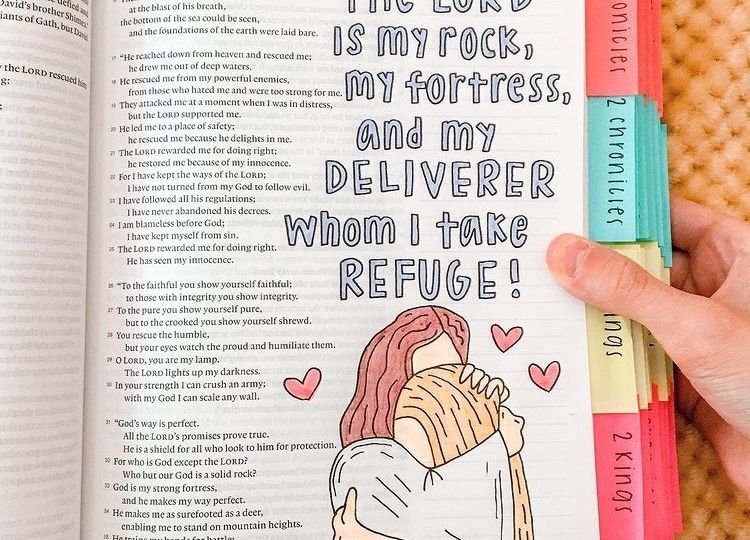 David's brother Shimea,
iants of Gath, but David
the LORD rescued him
g:
at the blast of his breath,
the bottom of the sea could be seen,
and the foundations of the earth were laid bare.
17 "He reached down from heaven and rescued me;
he drew me out of deep waters.
18 He rescued me from my powerful enemies,
from those who hated me and were too strong for me.
19 They attacked me at a moment when I was in distress,
but the LORD supported me.
20 He led me to a place of safety;
he rescued me because he delights in me.
21 The LORD rewarded me for doing right;
he restored me because of my innocence.
22 For I have kept the ways of the LORD;
I have not turned from my God to follow evil.
23 I have followed all his regulations;
I have never abandoned his decrees.
24 I am blameless before God;
I have kept myself from sin.
25 The LORD rewarded me for doing right.
He has seen my innocence.
26 "To the faithful you show yourself faithful;
to those with integrity you show integrity.
27 To the pure you show yourself pure,
but to the crooked you show yourself shrewd.
28 You rescue the humble,
but your eyes watch the proud and humiliate them.
29 O LORD, you are my lamp.
The LORD lights up my darkness.
30 In your strength I can crush an army;
with my God I can scale any wall.
31 "God's way is perfect.
All the LORD's promises prove true.
He is a shield for all who look to him for protection.
32 For who is God except the LORD?
Who but our God is a solid rock?
33 God is my strong fortress,
and he makes my way perfect.
34 He makes me as surefooted as a deer,
enabling me to stand on mountain heights.
35 He trains my hands for battle;
THE LORD
IS my ROCK,
my fortress,
and my
DELIVERER
whom I take
REFUGE!
onicles
2 chronicles
ings
2 Kings